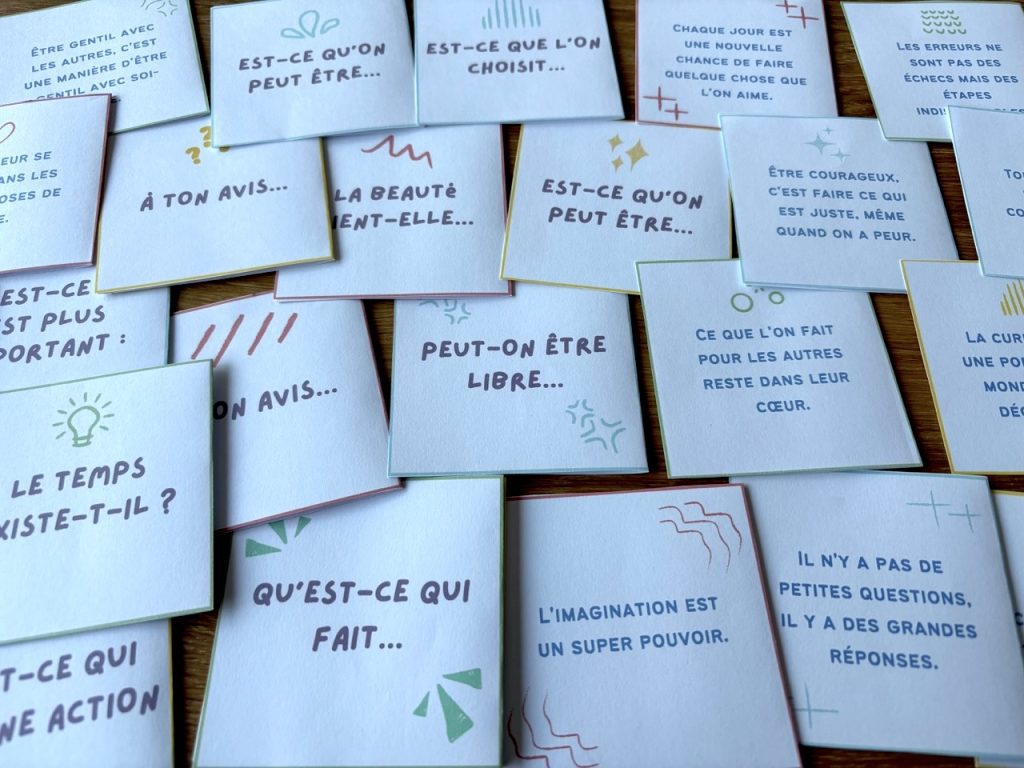 ÊTRE GENTIL AVEC
LES AUTRES, C'EST
UNE MANIÈRE D'ÊTRE
GENTIL AVEC SOI-
EST-CE QU'ON
PEUT ÊTRE...
EST-CE QUE L'ON
CHOISIT...
CHAQUE JOUR EST
UNE NOUVELLE
CHANCE DE FAIRE
QUELQUE CHOSE QUE
L'ON AIME.
LES ERREURS NE
SONT PAS DES
ÉCHECS MAIS DES
ÉTAPES
EUR SE
ANS LES
OSES DE
E.
À TON AVIS...
LA BEAUTÉ
IENT-ELLE...
EST-CE QU'ON
PEUT ÊTRE...
ÊTRE COURAGEUX,
C'EST FAIRE CE QUI
EST JUSTE, MÊME
QUAND ON A PEUR.
EST-CE
ST PLUS
PORTANT :
ON AVIS...
PEUT-ON ÊTRE
LIBRE...
CE QUE L'ON FAIT
POUR LES AUTRES
RESTE DANS LEUR
CŒUR.
LA CUR
UNE PO
MOND
DÉC
LE TEMPS
XISTE-T-IL ?
QU'EST-CE QUI
FAIT...
L'IMAGINATION EST
UN SUPER POUVOIR.
IL N'Y A PAS DE
PETITES QUESTIONS,
IL Y A DES GRANDES
RÉPONSES.
T-CE QUI
NE ACTION